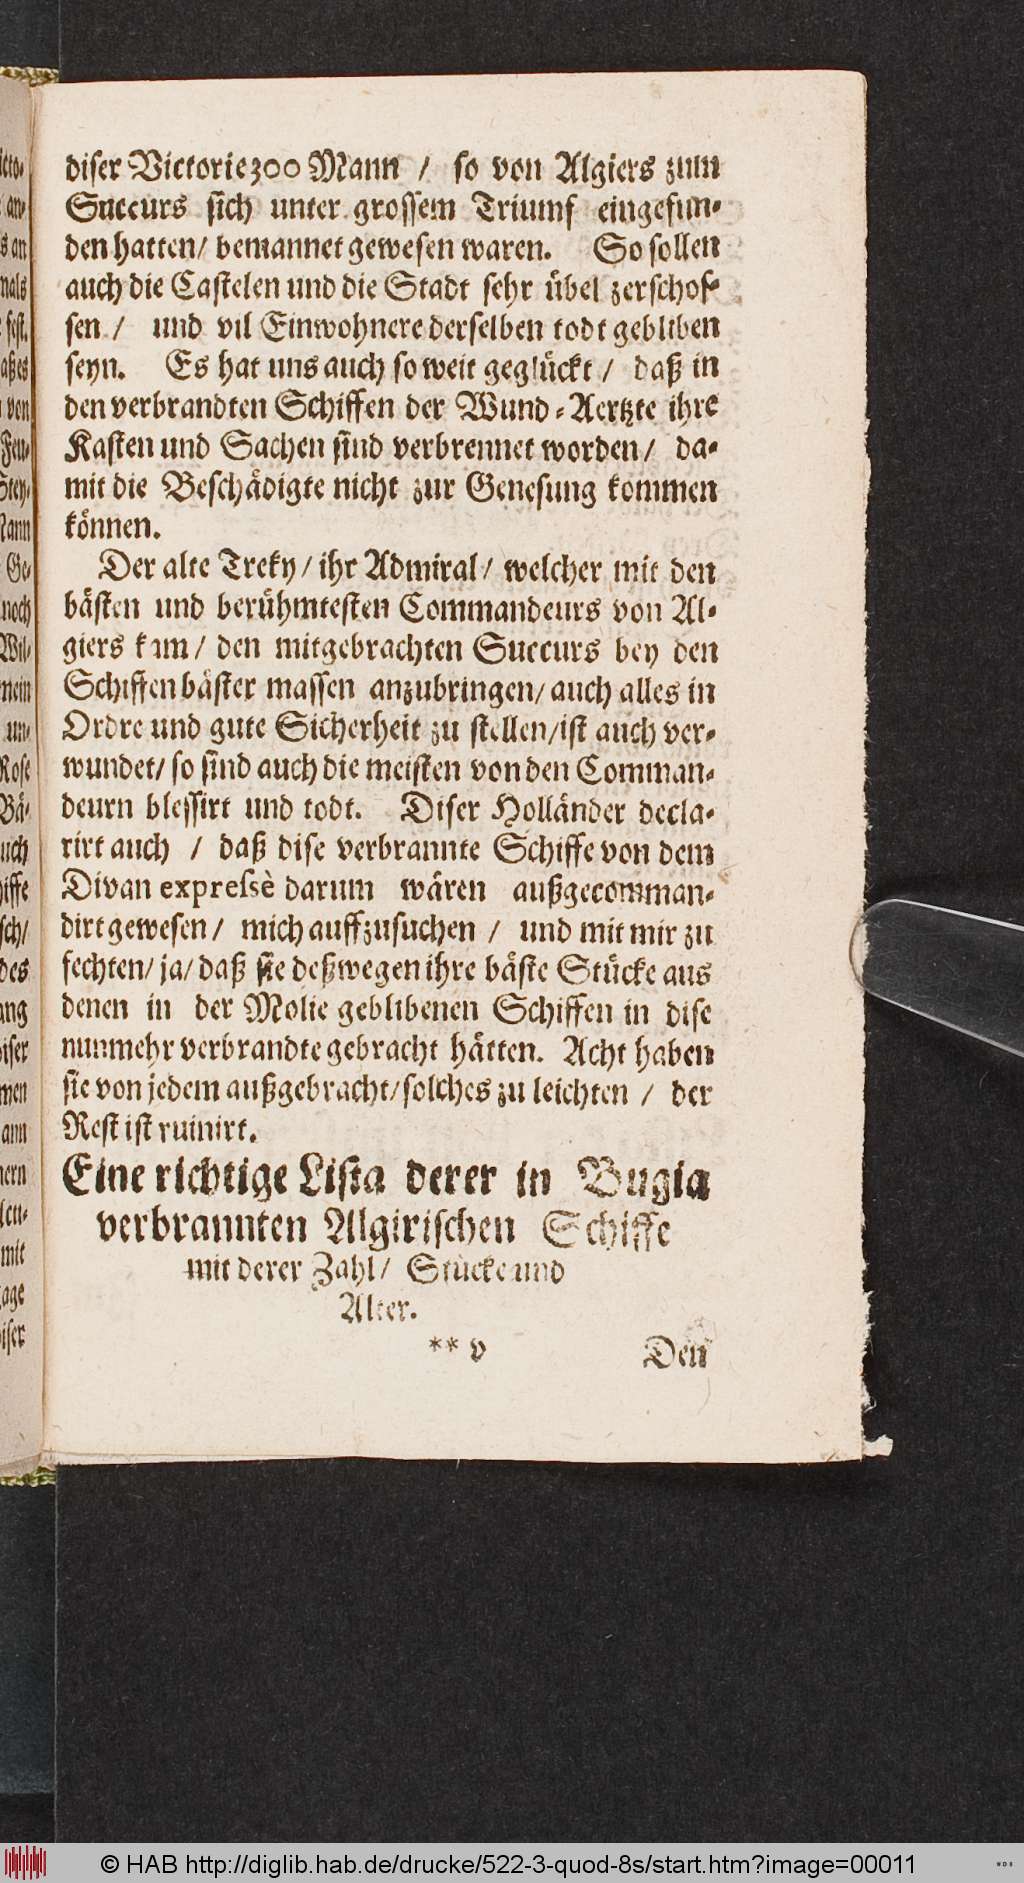 diser Victorie 300 Mann / so von Algiers zum
Succurs sich unter grossem Triumf eingefun-
den hatten / bemannet gewesen waren. So sollen
auch die Castelen und die Stadt sehr übel zerschos-
sen / und vil Einwohnere derselben todt gebliben
seyn. Es hat uns auch so weit geglückt / daß in
den verbrandten Schiffen der Wund-Aertzte ihre
Kasten und Sachen sind verbrennet worden / da-
mit die Beschädigte nicht zur Genesung kommen
können.
Der alte Treky / ihr Admiral / welcher mit den
bästen und berühmtesten Commandeurs von Al-
giers kam / den mitgebrachten Succurs bey den
Schiffen bäster massen anzubringen / auch alles in
Ordre und gute Sicherheit zu stellen / ist auch ver-
wundet / so sind auch die meisten von den Comman-
deurn blessirt und todt. Diser Holländer decla-
rirt auch / daß dise verbrannte Schiffe von dem
Divan expressè darum wären außgecomman-
dirt gewesen / mich auffzusuchen / und mit mir zu
fechten / ja / daß sie deßwegen ihre bäste Stücke aus
denen in der Molie geblibenen Schiffen in dise
nunmehr verbrandte gebracht hätten. Acht haben
sie von jedem außgebracht / solches zu leichten / der
Rest ist ruinirt.
Eine richtige Lista derer in Bugia
verbrannten Algirischen Schiffe
mit derer Zahl / Stücke und
Alter.
** v Den
© HAB http://diglib.hab.de/drucke/522-3-quod-8s/start.htm?image=00011